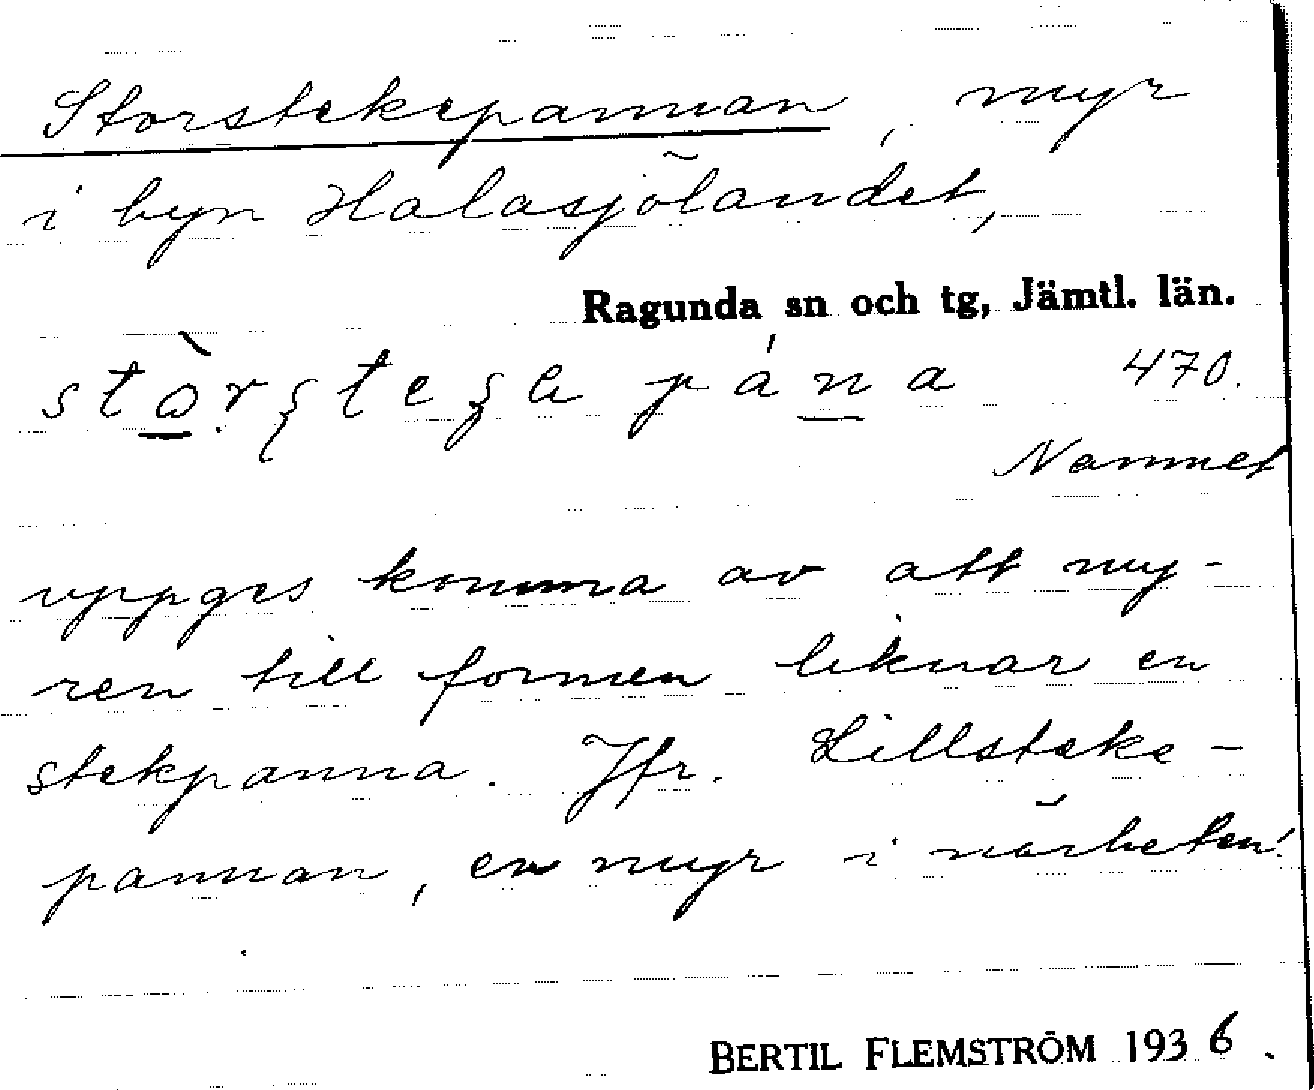 Storstekepannan, myr
i byn Halasjölandet,
Ragunda sn och tg, Jämtl. län.
470.
Namnet
uppges komma av att my-
ren till formen liknar en
stekpanna. Jfr. Lillsteke-
pannan, en myr i närheten.
BERTIL FLEMSTRÖM 1936.